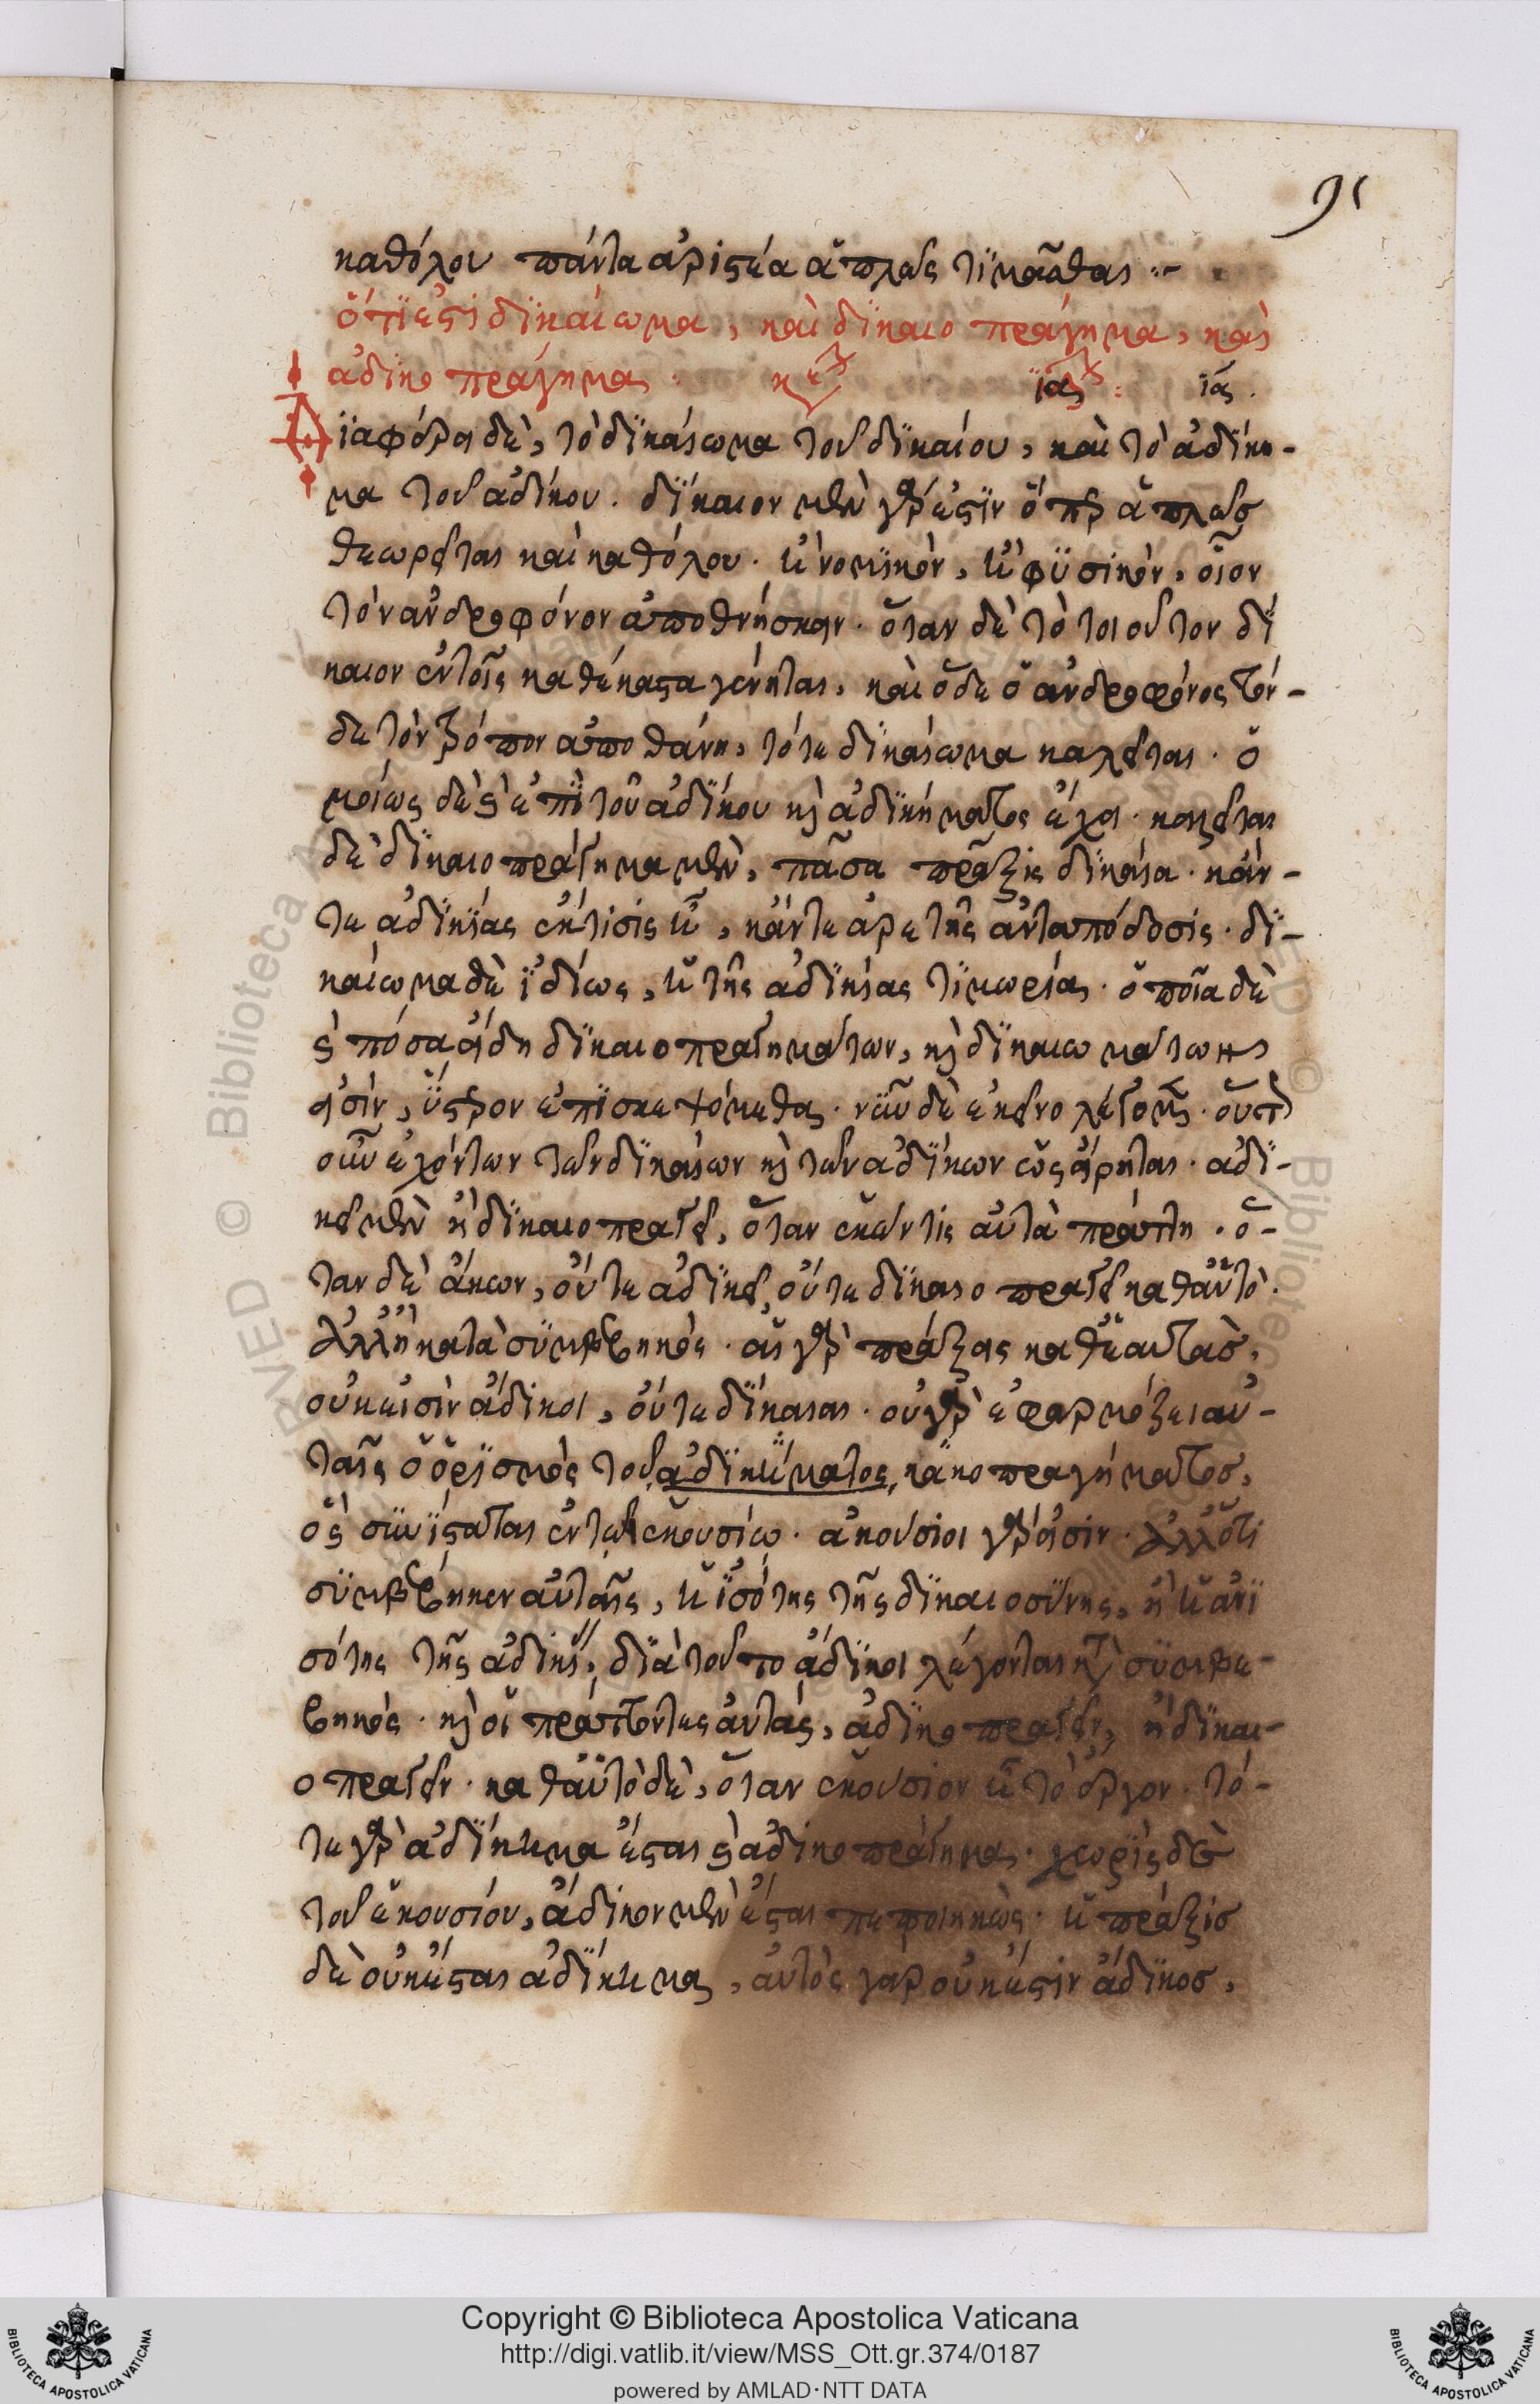 91
καθόλου πάντα ἀριστέα ἁπλῶς τιμᾶσθαι
ὅτι ἐστὶ δικαίωμα, καὶ δικαιοπράγημα, καὶ
ἀδικοπράγημα. ια.
Διαφέρει δὲ, τὸ δικαίωμα τοῦ δικαίου, καὶ τὸ ἀδίκη-
μα τοῦ ἀδίκου. δίκαιον μὲν γάρ ἐστιν ὅπερ ἁπλῶσ
θεωρεῖται καὶ καθόλου. ἢ νομικὸν, ἢ φυσικὸν, οἷον
τὸν ἀνδροφόνον ἀποθνήσκειν. ὅταν δὲ τὸ τοιοῦτον δί
καιον ἐν τοῖς καθέκαστα γένηται, καὶ ὅδε ὁ ἀνδροφόνος τόν-
δε τὸν τρόπον ἀποθάνῃ, τότε δικαίωμα καλεῖται. ὁ
μοίως δὲ καὶ ἐπὶ τοῦ ἀδίκου καὶ ἀδικήματος ἔχει. καλεῖται
δὲ δικαιοπράγημα μὲν, πᾶσα πρᾶξις δικαία. κἄν-
τε ἀδικίας ἔκτισις ᾖ, κἄντε ἀρετῆς ἀνταπόδοσις. δι-
καίωμα δὲ ἰδίως, ἡ τῆς ἀδικίας τιμωρία. ὁποῖα δὲ
καὶ πόσα εἴδη δικαιοπραγημάτων, καὶ δικαιωμάτων
εἰσὶν, ὕστερον ἐπισκεψόμεθα. νῦν δὲ ἐκεῖνο λέγομεν. οὕτω
οὖν ἐχόντων τῶν δικαίων καὶ τῶν ἀδίκων ὡς εἴρηται. ἀδι-
κεῖ μὲν ἢ δικαιοπραγεῖ, ὅταν ἑκών τις αὐτὰ πράττῃ. ὅ-
ταν δὲ ἄκων, οὔτε ἀδικεῖ, οὔτε δικαιοπραγεῖ καθαὑτὸ.
ἀλλ' ἢ κατὰ συμβεβηκός. αἱ γὰρ πράξεις καθ' ἑαυτὰσ,
οὐκ εἰσὶν ἄδικοι, οὔτε δίκαιαι. οὐ γὰρ ἐφαρμόζει αὐ-
ταῖς ὁ ὁρισμὸς τοῦ ἀδικήματος, κακοπραγήματοσ,
ὃς συνίσταται ἐν τῷ ἑκουσίῳ. ἀκούσιοι γάρ εἰσιν. ἀλλ' ὅτι
συμβέβηκεν αὐταῖς, ἡ ἰσότης τῆς δικαιοσύνης, ἢ ἡ ἀνι
σότης τῆς ἀδικίας, διὰ τοῦτο ἄδικοι λέγονται κατὰ συμβε-
βηκός. καὶ οἱ πράττοντες αὐτάς, ἀδικοπραγεῖν, ἢ δικαι-
οπραγεῖν. καθαὑτὸ δὲ, ὅταν ἑκούσιον ᾖ τὸ ἔργον. τό-
τε γὰρ ἀδίκημα ἔσται καὶ ἀδικοπράγημα. χωρὶς δὲ
τοῦ ἑκουσίου, ἄδικον μὲν ἔσται πεποιηκώς. ἡ πρᾶξισ
δὲ οὐκ ἔσται ἀδίκημα, αὐτὸς γὰρ οὐκ ἔστιν ἄδικοσ,
Copyright © Biblioteca Apostolica Vaticana
http://digi.vatlib.it/view/MSS_Ott.gr.374/0187
powered by AMLAD·NTT DATA